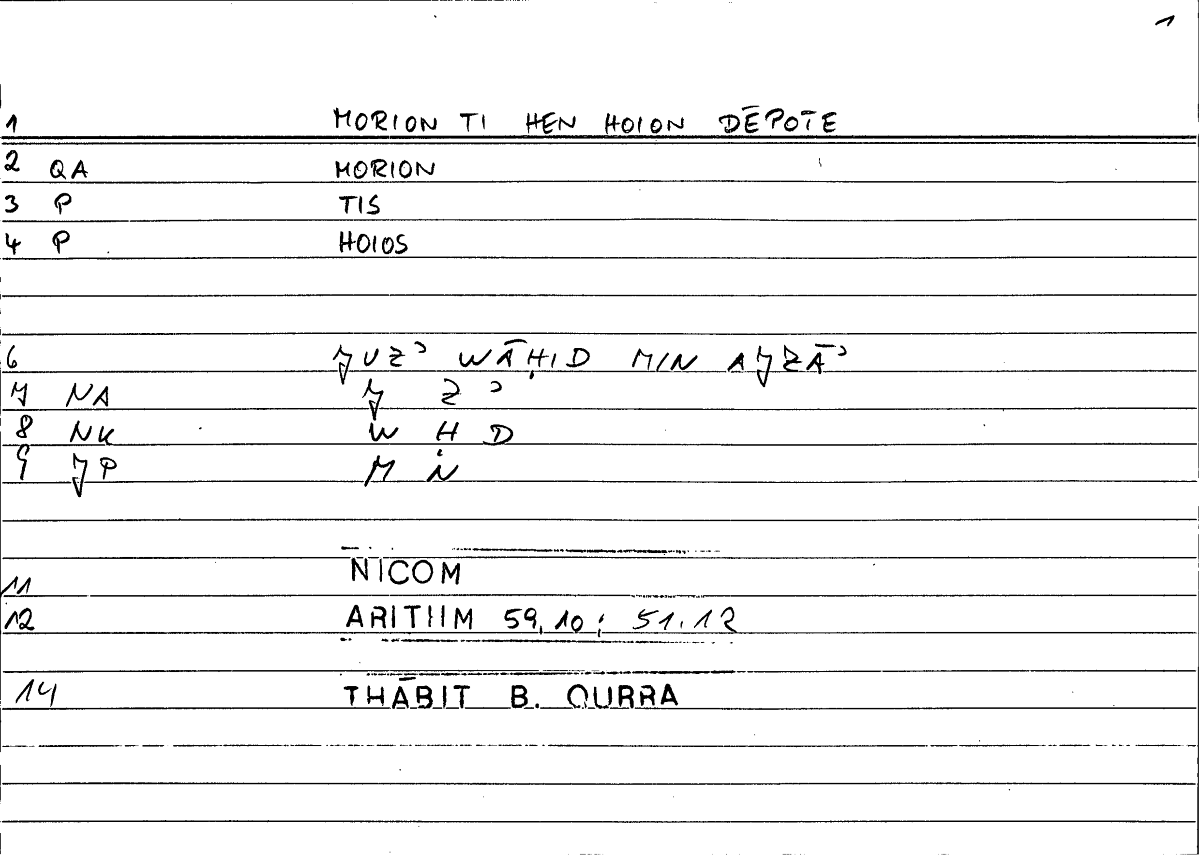 1
1 MORION TI HEN HOION DĒPOTE
2 QA MORION
3 P TIS
4 P HOIOS
6 ǦUZʾ WĀḤID MIN AǦZĀʾ
7 NA Ǧ Z ʾ
8 NK W Ḥ D
9 ǦP M N
11 NICOM
12 ARITHM 59,10; 51.12
14 THĀBIT B. QURRA